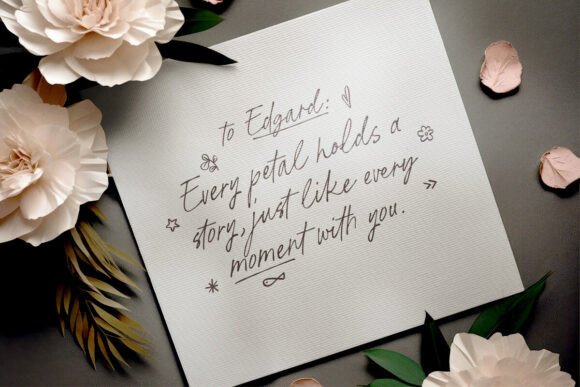 to Edgard:
Every petal holds a
story, just like every
moment with you.